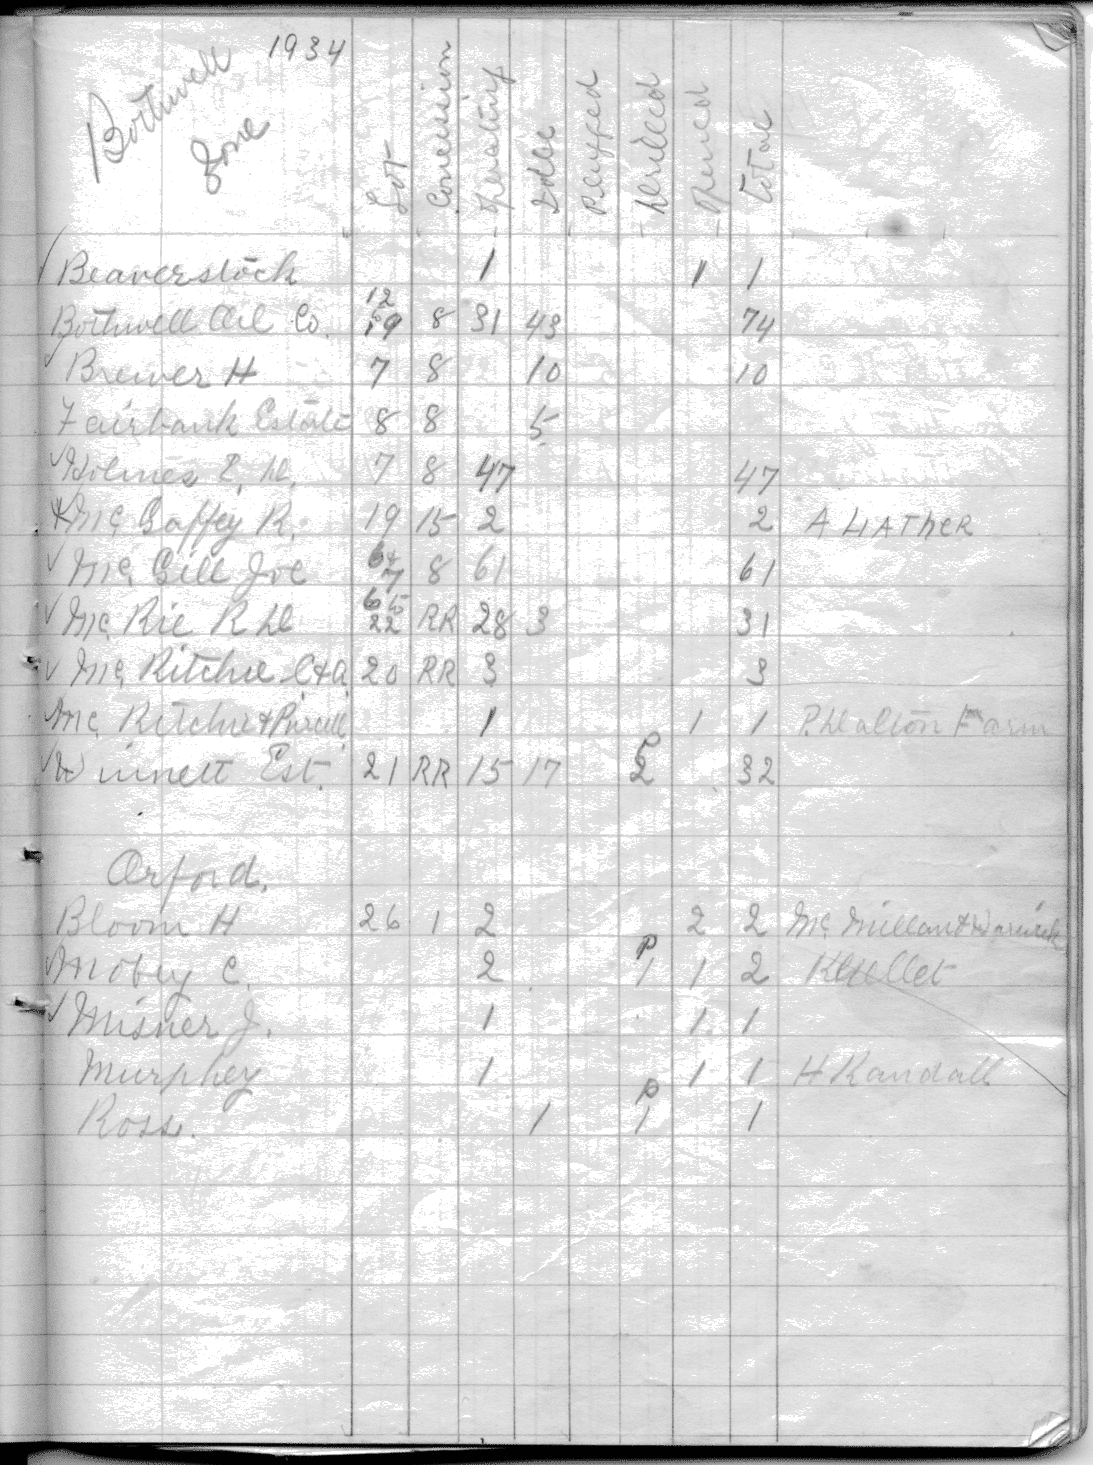 1934
Bothwell
Zone
Lot Concession Operating Idle Plugged Drilled Opened Total
Beaverstock 1 1 1
Bothwell Oil Co. 12 & 19 8 31 43 74
✓ Brewer H 7 8 10 10
Fairbank Estate 8 8 5
✓ Holmes E. D. 7 8 47 47
Mc Gaffey R. 19 15 2 2 A LIATHER
✓ Mc Gill Joe 6 & 7 8 61 61
✓ Mc Rie R D 22 RR 28 3 31
✓ Mc Ritchie C & A 20 RR 3 3
✓ Mc Ritchie & Purcell 1 1 1 P. Dalton Farm
✓ Winnett Est. 21 RR 15 17 P 2 32
Orford.
Bloom H 26 1 2 2 2 Mc Millan & Warwick
✓ Mobey C. 2 P 1 1 2
✓ Misner J. 1 1 1
Murphey 1 1 1 H Randall
Ross. 1 P 1 1